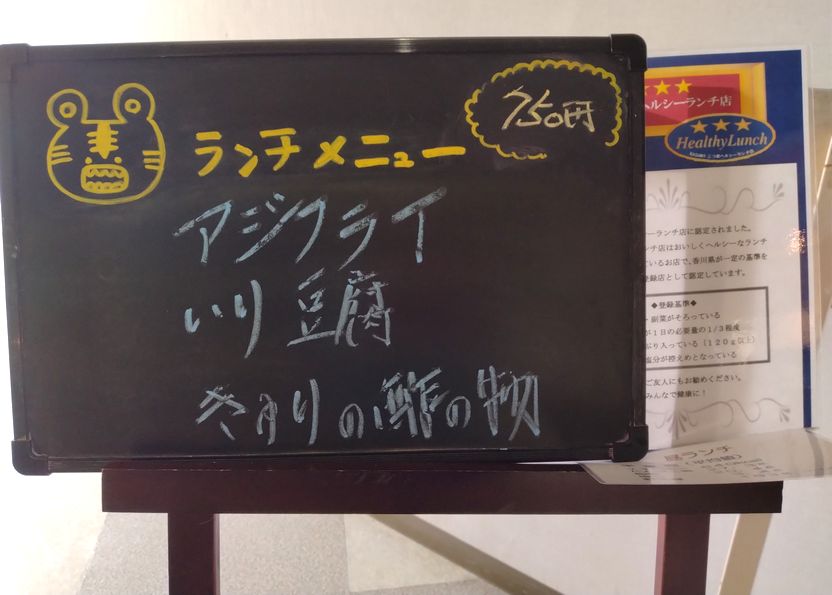 750円
ランチメニュー
アジフライ
いり豆腐
きゅりの酢の物
ヘルシーランチ店
HealthyLunch
ーランチ店に認定されました。
ンチ店はおいしくヘルシーなランチ
ているお店で、香川県が一定の基準を
登録店として認定しています。
◆登録基準◆
・副菜がそろっている
が1日の必要量の1/3程度
ぷり入っている（120g以上）
塩分が控えめとなっている
ご友人にもお勧めください。
みんなで健康に！
ランチ